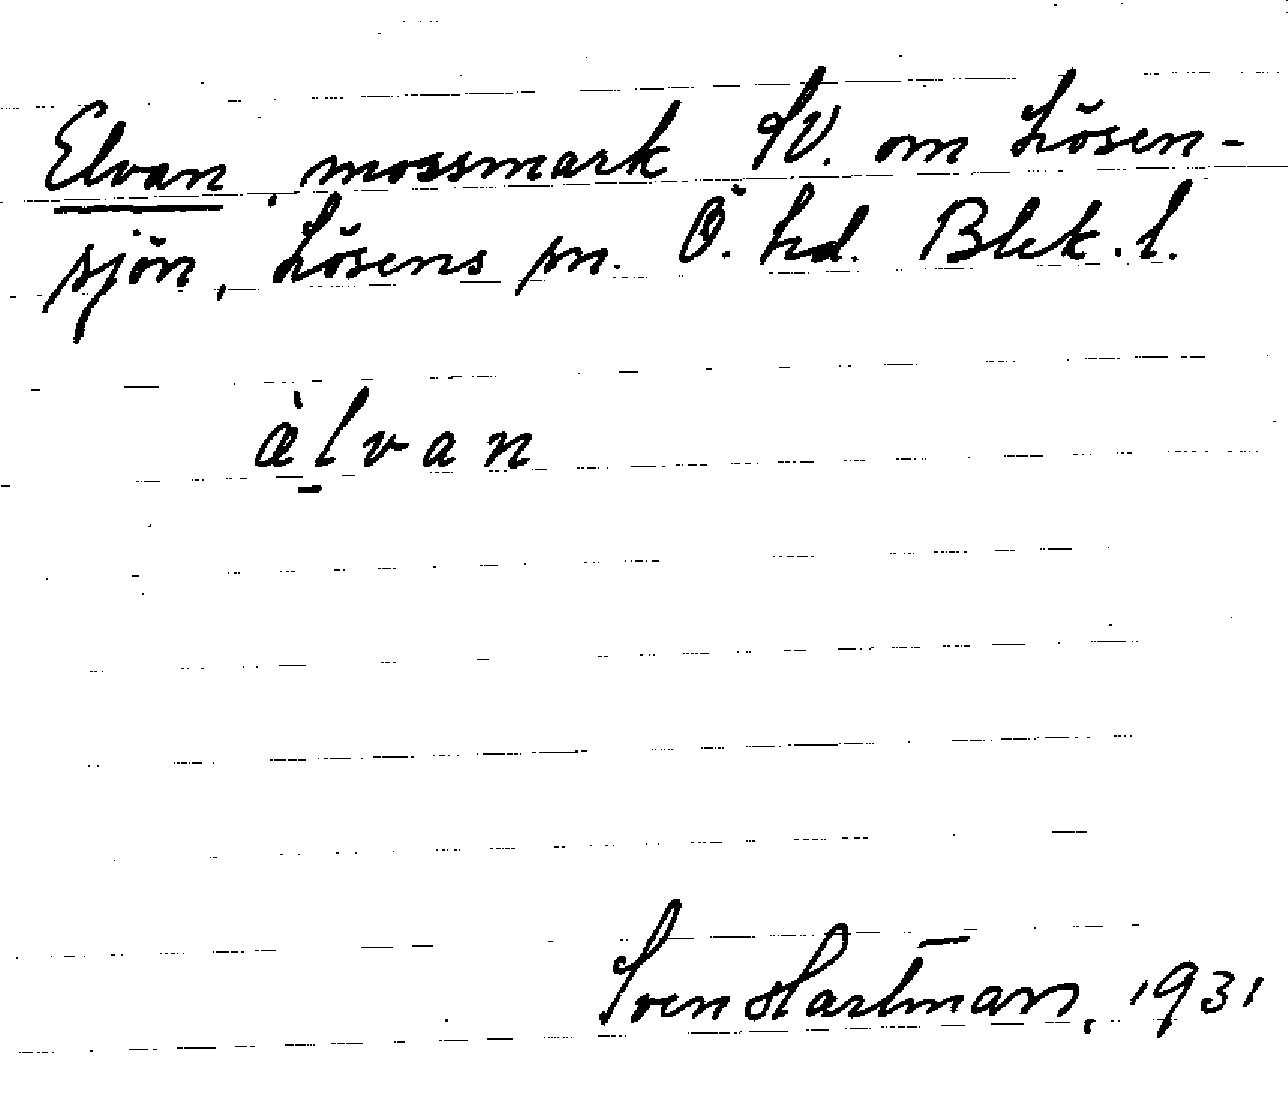 Elvan, mossmark SV. om Lösen-
sjön, Lösens sn. Ö. hd. Blek. l.
æ̀l̠van
Sven Hartman, 1931